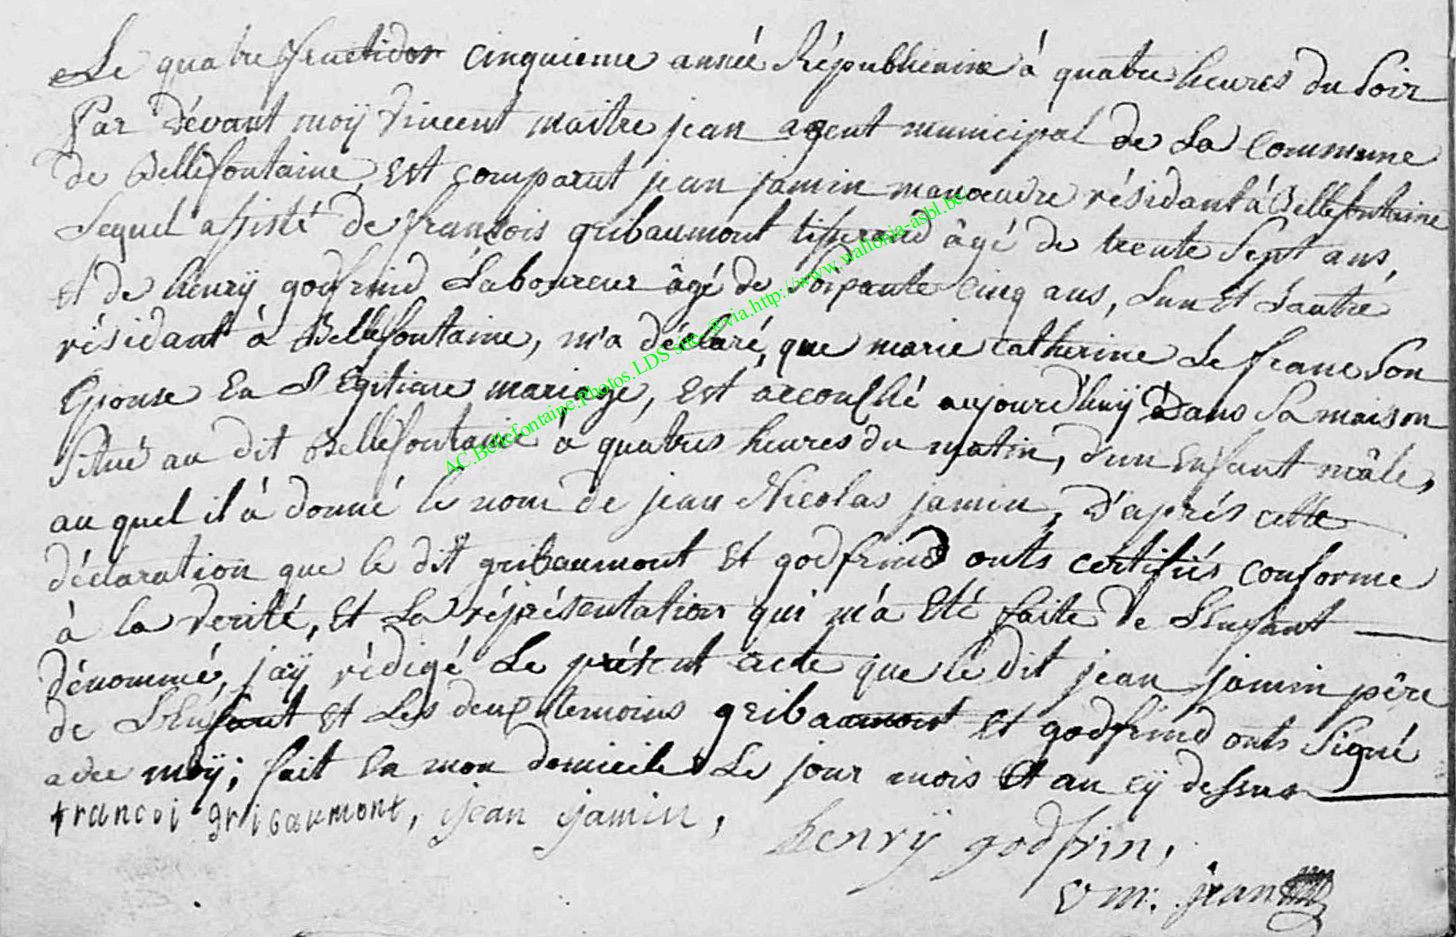 Le quatre fructidor cinquieme année Républicaine à quatre heures du Soir
Par dévant moÿ vincent maitre jean agent municipal de La Commune
de Bellefontaine, Est comparut jean jamin manœuvre résidant à Bellefontaine
Lequel assisté de francois gribaumont tisserand âgé de trente Sept ans,
Et de henrÿ godfrind Laboureur âgé de soixante cinq ans, Lun Et Lautre
résidant à Bellefontaine, m'a déclaré, que marie catherine Le franc Son
Epouse En Légitime mariage, Est accouché aujourd'huÿ Dans Sa maison
Situé au dit Bellefontaine à quatres heures du matin, d'un Enfant mâle,
au quel il à donné le nom de jean Nicolas jamin, D'aprés cette
déclaration que le dit gribaumont Et godfrind onts certifiés conforme
à la verité, Et La réprésentation qui m'a Eté faite de L'Enfant
dénommé, j'aÿ rédigé Le présent acte que le dit jean jamin pêre
de L'Enfant Et Les deux temoins gribaumont Et godfrind onts Signé
avec moÿ; fait En mon domicile Le jour mois Et an cÿ dessus
francoi gribaumont, jean jamin,
henrÿ godfrin,
v m: jean
AC.Bellefontaine.Photos.LDS via.http://www.wallonia-asbl.be